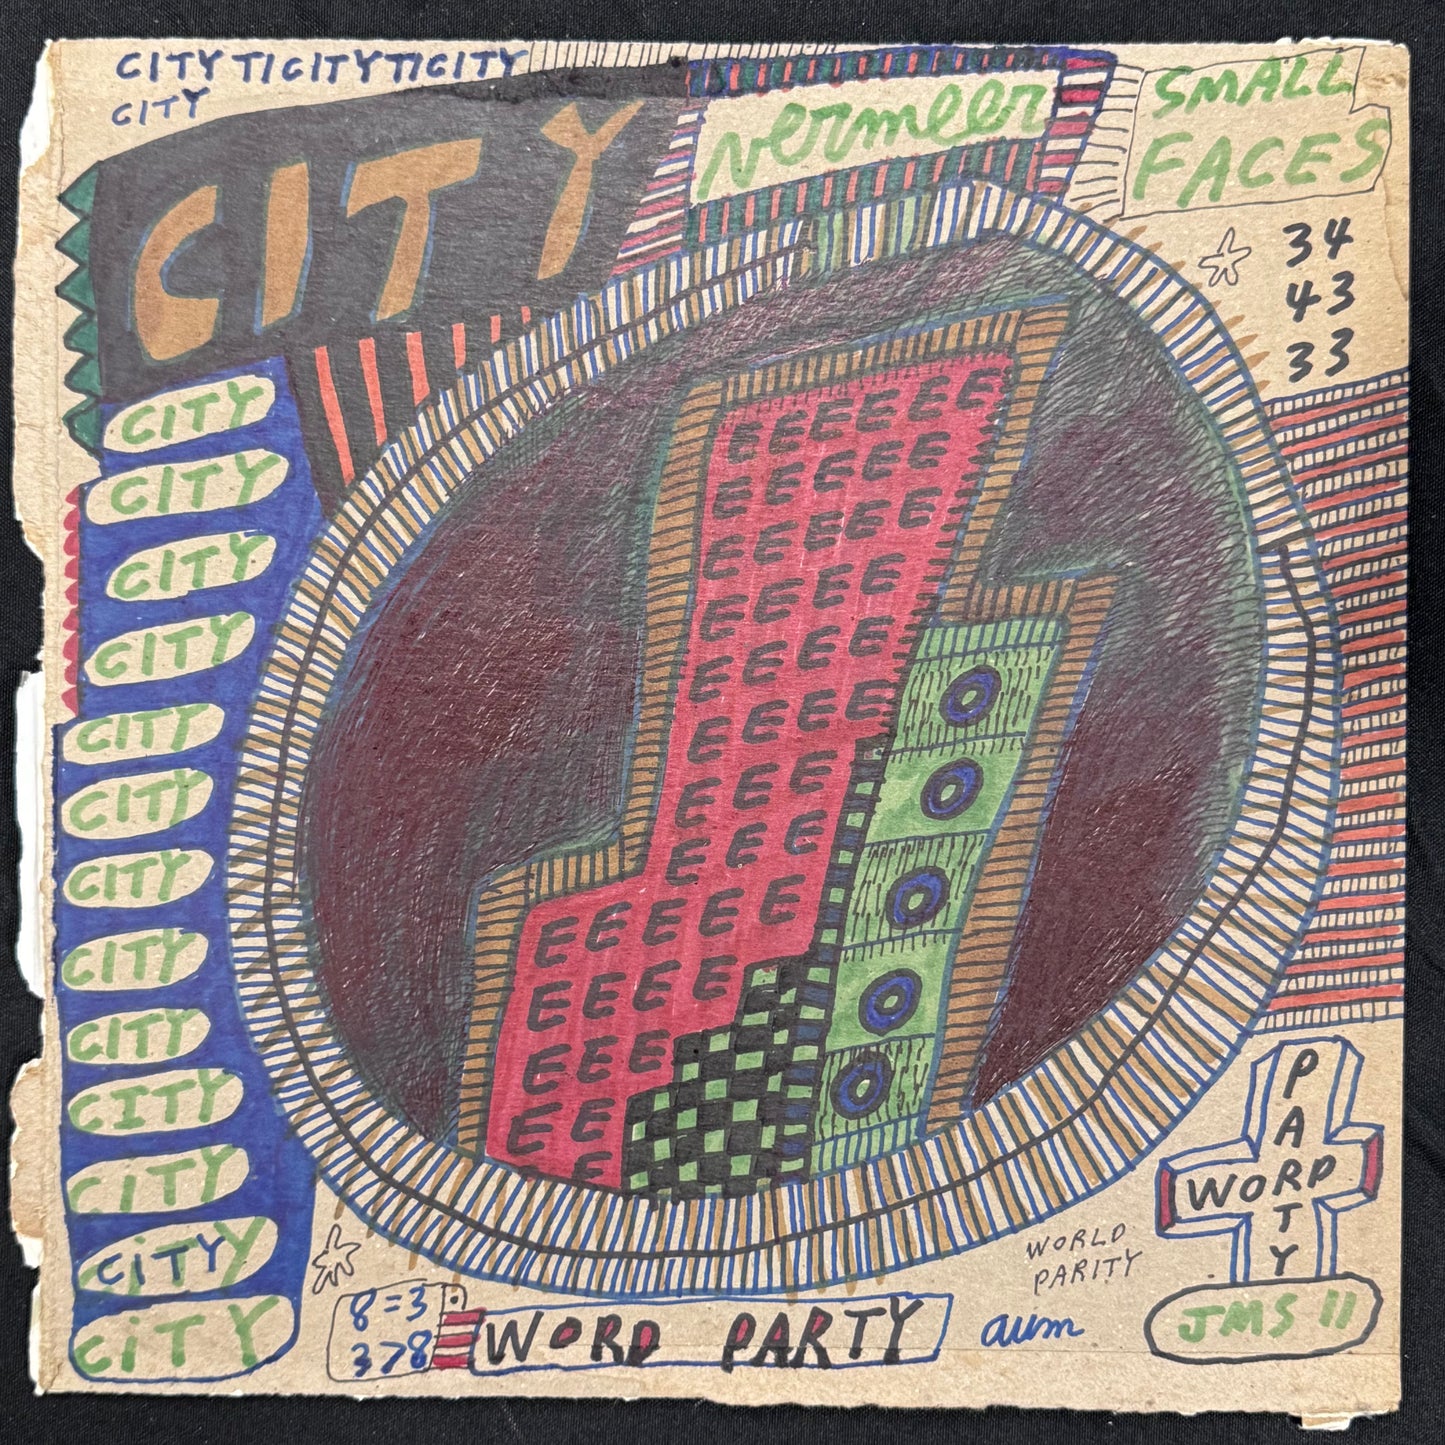 CITYTICITYTICITY
CITY
CITY
vermeer
SMALL
FACES
34
43
33
CITY
CITY
CITY
CITY
CITY
CITY
CITY
CITY
CITY
CITY
CITY
CiTY
CiTY
EEEEEE
EEEEE
EEEEE
EEEE
EEEE
EEEE
EEEE
EEE
EEE
EEEEE
EEEE
EEE
EE
E
PARTY
WORD
WORLD
PARITY
8=3
3>8
WORD PARTY
aum
JMS 11